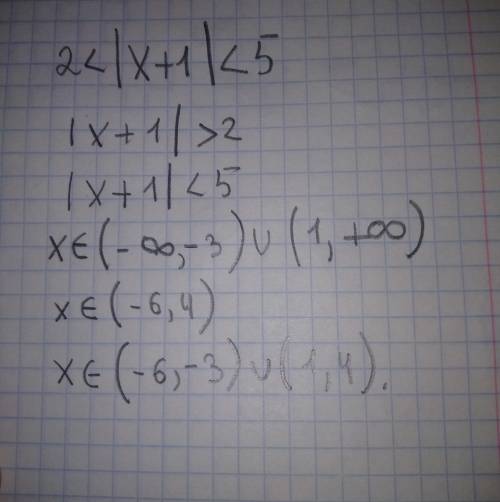 2<|x+1|<5
|x+1|>2
|x+1|<5
x∈(-∞,-3)∪(1,+∞)
x∈(-6,4)
x∈(-6,-3)∪(1,4).